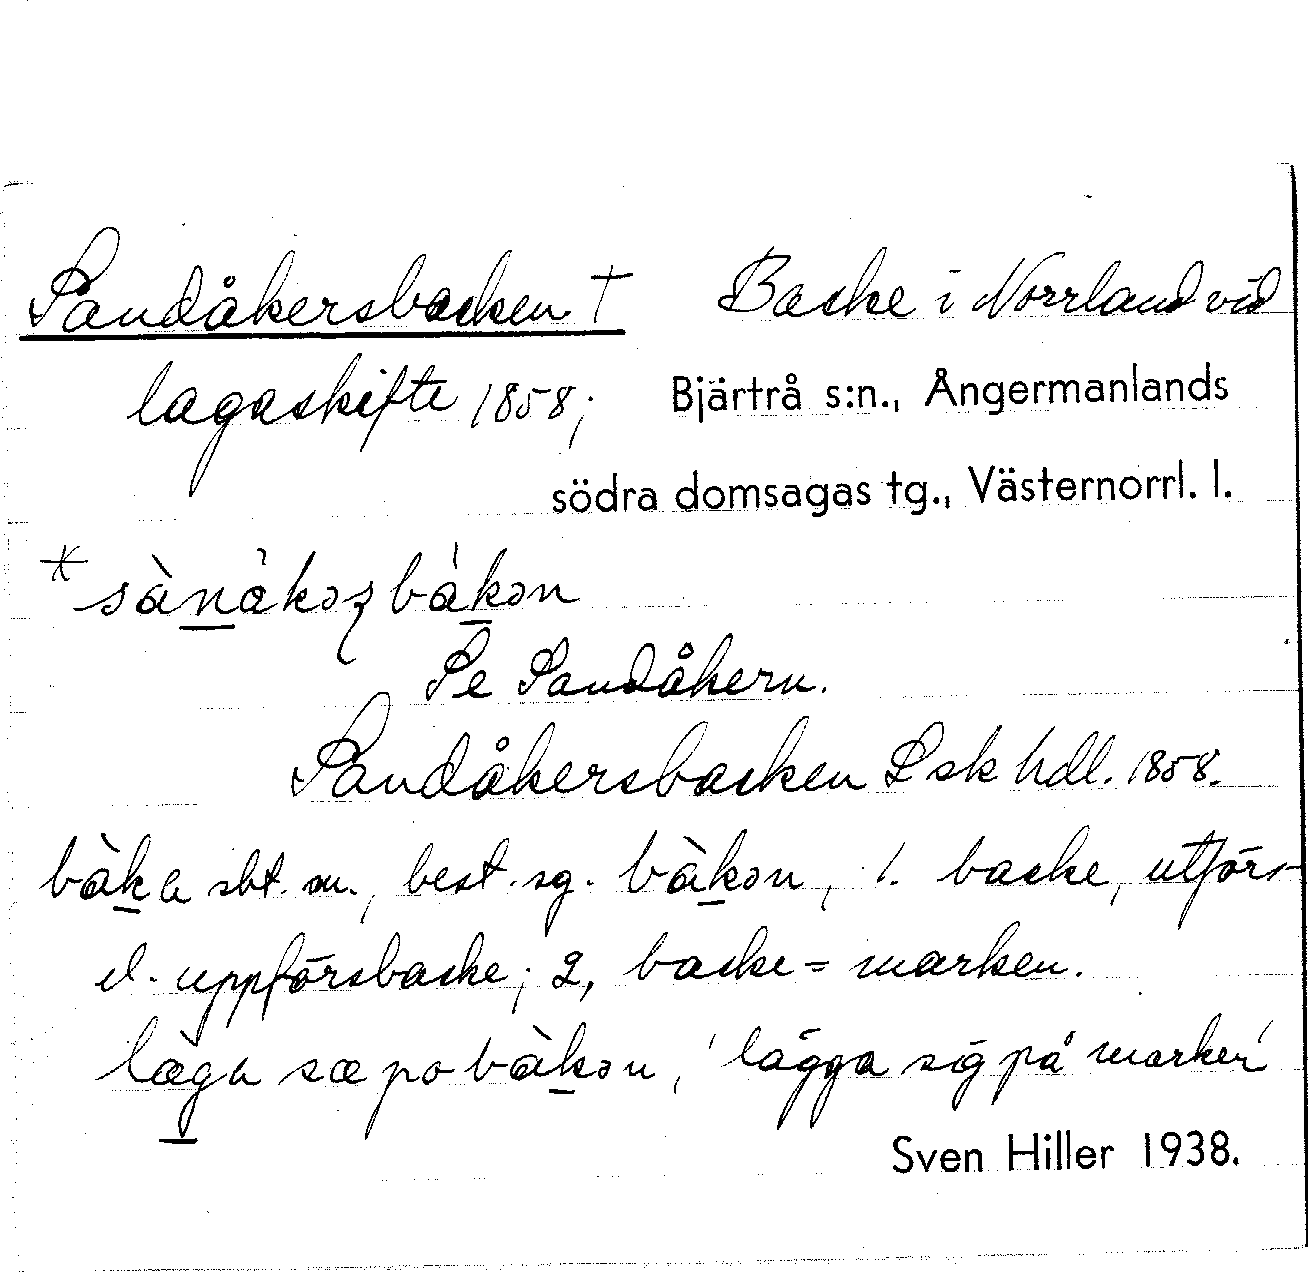 Sandåkersbacken † Backe i Norrland vid
lagaskifte 1858; Bjärtrå s:n., Ångermanlands
södra domsagas tg., Västernorrl. l.
* sànàkəʒbàkən
Se Sandåkern.
Sandåkersbacken Lsk hdl. 1858.
bàka sbt. m., best. sg. bàkən, 1. backe, utförs-
el. uppförsbacke; 2, backe = marken.
lægа sæ po bàkən, 'lägga sig på marken'
Sven Hiller 1938.